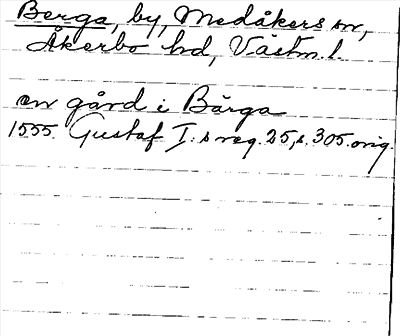 Berga, by, Medåkers sn,
Åkerbo hd, Västm. l.
en gård i Bärga
1555. Gustaf I:s reg. 25, s. 305. orig.